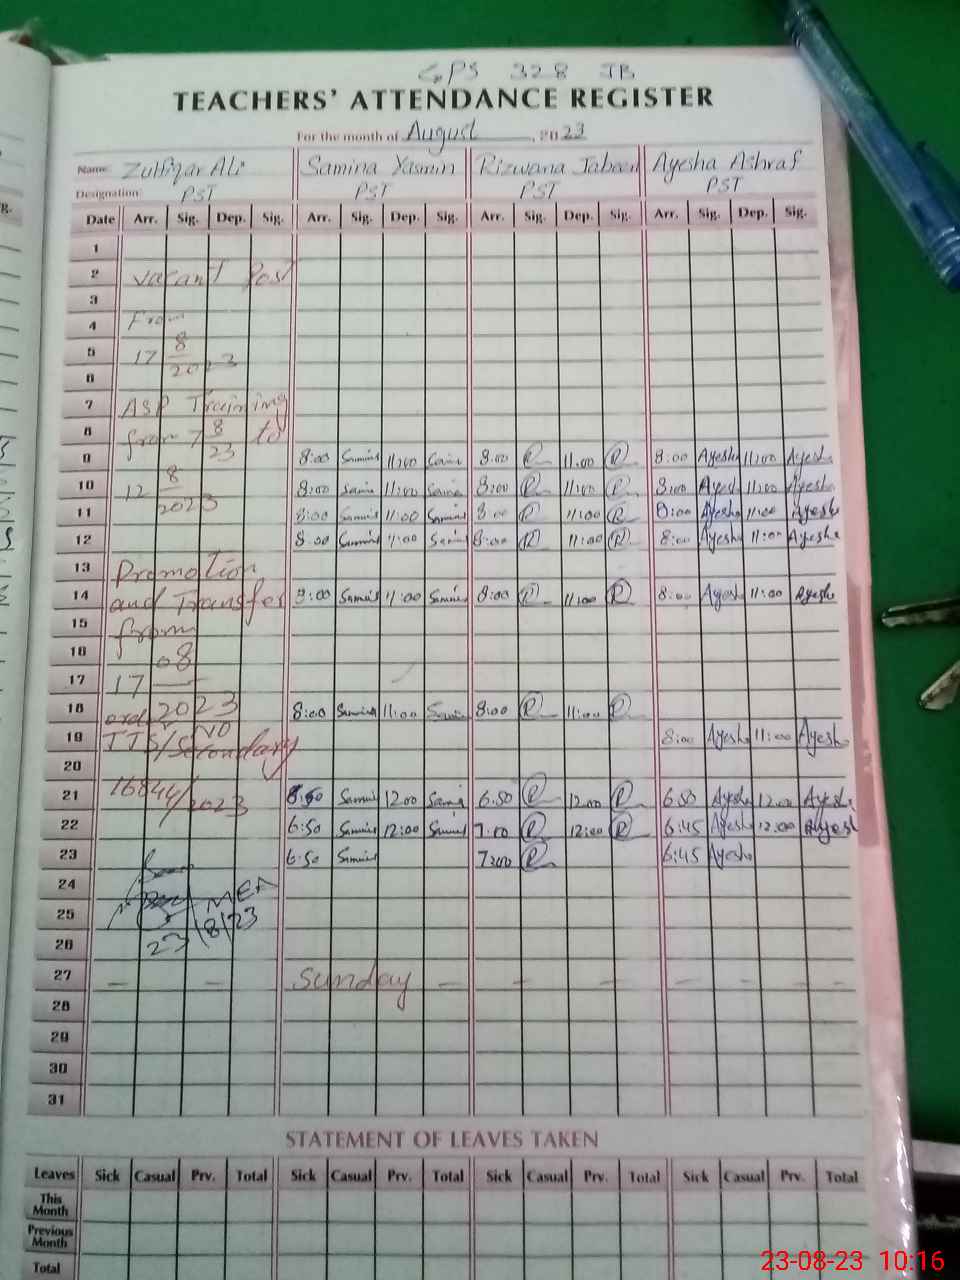 GPS 328 JB
TEACHERS' ATTENDANCE REGISTER
For the month of August, 2023
Name: Zulfiqar Ali Samina Yasmin Rizwana Jabeen Ayesha Ashraf
Designation: PST PST PST PST
Date Arr. Sig. Dep. Sig. Arr. Sig. Dep. Sig. Arr. Sig. Dep. Sig. Arr. Sig. Dep. Sig.
1
2 Vacant Post
3
4 From
5 17 8/2023
6
7 ASP Training
8 from 7 8/23 to
9 8:00 11:00 8:00 R 11:00 R 8:00 Ayesha 11:00 Ayesha
10 12 8/2023 8:00 11:00 8:00 R 11:00 R 8:00 Ayesha 11:00 Ayesha
11 8:00 11:00 8:00 R 11:00 R 8:00 Ayesha 11:00 Ayesha
12 8:00 11:00 8:00 R 11:00 R 8:00 Ayesha 11:00 Ayesha
13 Promotion
14 and Transfer 8:00 11:00 8:00 R 11:00 R 8:00 Ayesha 11:00 Ayesha
15 from
16 08
17 17
18 ord 2023 8:00 11:00 8:00 R 11:00 R
19 NO 8:00 Ayesha 11:00 Ayesha
20
21 16844/2023 12:00 6:50 R 12:00 R 6:50 Ayesha 12:00 Ayesha
22 6:50 12:00 7:00 R 12:00 R 6:45 Ayesha 12:00 Ayesha
23 6:50 7:00 R 6:45 Ayesha
24 MEA
25 23/8/23
26
27 — — Sunday — — — — — — —
28
29
30
31
STATEMENT OF LEAVES TAKEN
Leaves Sick Casual Prv. Total Sick Casual Prv. Total Sick Casual Prv. Total Sick Casual Prv. Total
This Month
Previous Month
Total
23-08-23 10:16